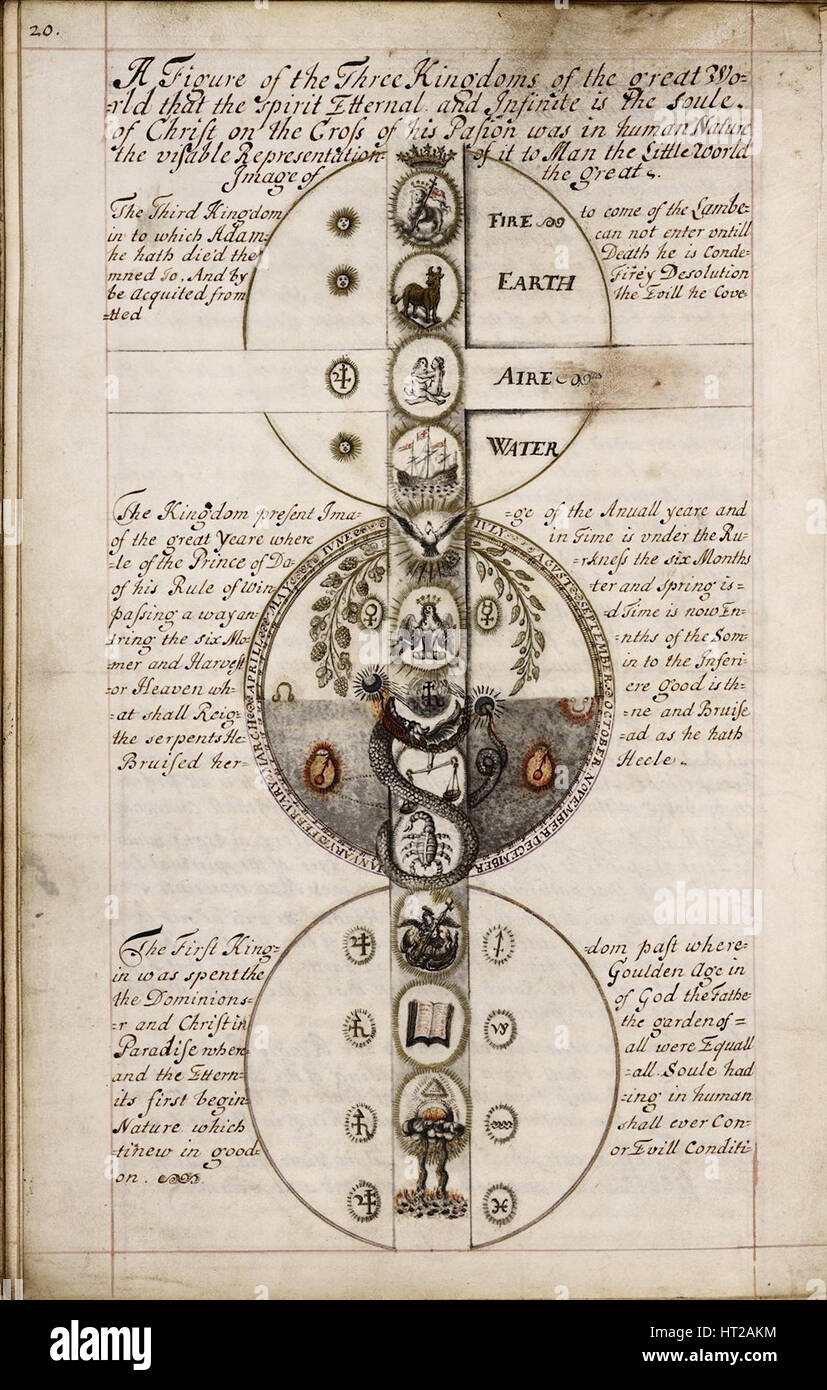 20.
A Figure of the Three Kingdoms of the great Wo=
=rld that the Spirit Etternal and Infinite is the Soule.
of Christ on the Cross of his Pasion was in human Nature
the visable Representation of it to Man the Little World
Image of the great.
The Third Kingdom to come of the Lambe=
in to which Adam= can not enter untill
he hath die'd the Death he is Conde=
mned To. And by Firey Desolution
be Acquited from the Evill he Cove=
=tted
FIRE
EARTH
AIRE
WATER
The Kingdom present Ima= =ge of the Anuall yeare and
of the great Yeare where in Time is vnder the Ru=
=le of the Prince of Da= =rkness the six Months
of his Rule of Win= =ter and Spring is=
passing a way an= =d Time is now En=
=tring the six Mo= =nths of the Som=
=mer and Harvest in to the Inferi=
=or Heaven wh= ere Good is th=
=at shall Reig= =ne and Bruise
the serpents He= =ad as he hath
Bruised her= Heele.
IANVARY FEBVARY MARCH APRILL MAY IVNE IVLY AGVST SEPTEMBER OCTOBER NOVEMBER DECEMBER
The First King= =dom past where=
in was spent the Goulden Age in
the Dominions= of God the Fathe=
=r and Christ in the garden of=
Paradise where all were Equall
and the Ettern= =all Soule had
its first begin= =ing in human
Nature which shall ever Con=
=tinew in good= or Evill Conditi=
on.
alamy
alamy
a
alamy stock photo
HT2AKM
www.alamy.com